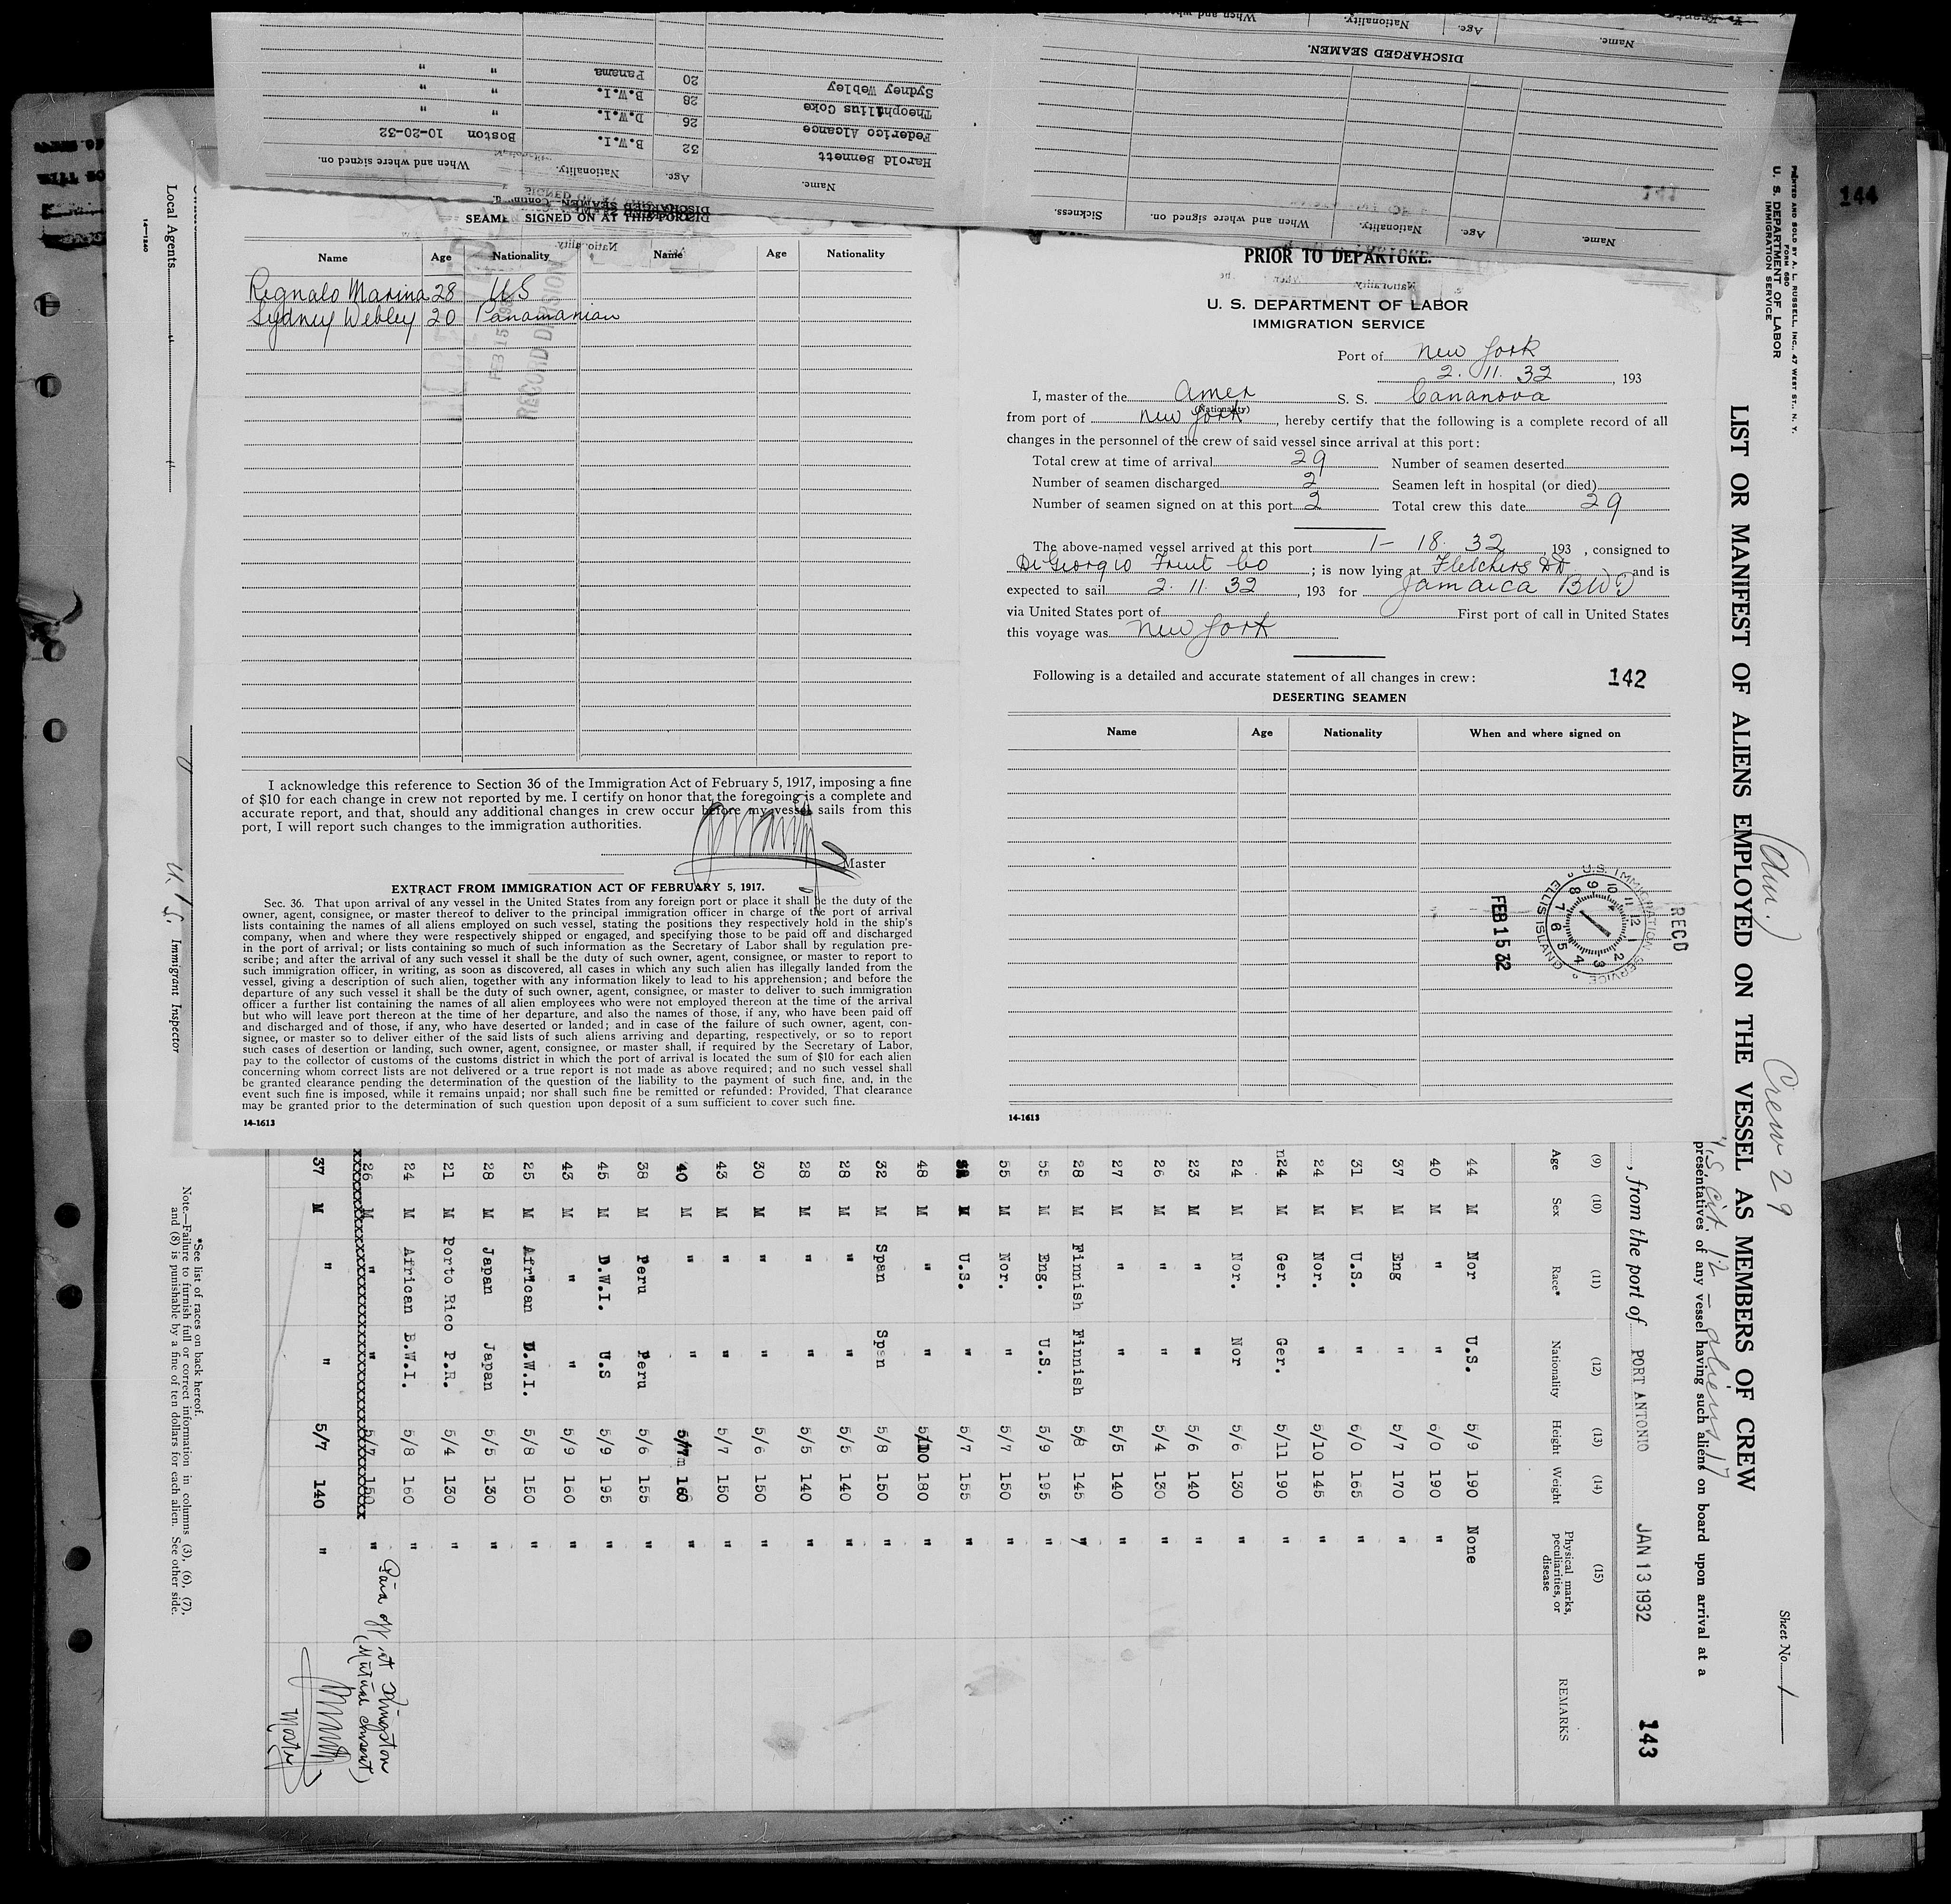 DISCHARGED SEAMEN.
Name. Age. Nationality. When and where signed on. Sickness.
Name. Age. Nationality. When and where signed on.
Harold Bennett 32 B.W.I. Boston 10-20-32
Federico Alcance 26 D.W.I. " "
Theophilius Coke 28 B.W.I. " "
Sydney Webley 20 Panama " "
SIGNED ON AT THIS PORT
Name Age Nationality Name Age Nationality
Reginalo Marina 28 U S
Sydney Webley 20 Panamanian
FEB 15
RECORD DIVISION
I acknowledge this reference to Section 36 of the Immigration Act of February 5, 1917, imposing a fine
of $10 for each change in crew not reported by me. I certify on honor that the foregoing is a complete and
accurate report, and that, should any additional changes in crew occur before my vessel sails from this
port, I will report such changes to the immigration authorities.
Master
EXTRACT FROM IMMIGRATION ACT OF FEBRUARY 5, 1917.
Sec. 36. That upon arrival of any vessel in the United States from any foreign port or place it shall be the duty of the
owner, agent, consignee, or master thereof to deliver to the principal immigration officer in charge of the port of arrival
lists containing the names of all aliens employed on such vessel, stating the positions they respectively hold in the ship's
company, when and where they were respectively shipped or engaged, and specifying those to be paid off and discharged
in the port of arrival; or lists containing so much of such information as the Secretary of Labor shall by regulation pre-
scribe; and after the arrival of any such vessel it shall be the duty of such owner, agent, consignee, or master to report to
such immigration officer, in writing, as soon as discovered, all cases in which any such alien has illegally landed from the
vessel, giving a description of such alien, together with any information likely to lead to his apprehension; and before the
departure of any such vessel it shall be the duty of such owner, agent, consignee, or master to deliver to such immigration
officer a further list containing the names of all alien employees who were not employed thereon at the time of the arrival
but who will leave port thereon at the time of her departure, and also the names of those, if any, who have been paid off
and discharged and of those, if any, who have deserted or landed; and in case of the failure of such owner, agent, con-
signee, or master so to deliver either of the said lists of such aliens arriving and departing, respectively, or so to report
such cases of desertion or landing, such owner, agent, consignee, or master shall, if required by the Secretary of Labor,
pay to the collector of customs of the customs district in which the port of arrival is located the sum of $10 for each alien
concerning whom correct lists are not delivered or a true report is not made as above required; and no such vessel shall
be granted clearance pending the determination of the question of the liability to the payment of such fine, and, in the
event such fine is imposed, while it remains unpaid; nor shall such fine be remitted or refunded: Provided, That clearance
may be granted prior to the determination of such question upon deposit of a sum sufficient to cover such fine.
14-1613
PRIOR TO DEPARTURE.
U. S. DEPARTMENT OF LABOR
IMMIGRATION SERVICE
Port of New York
2. 11. 32, 193
I, master of the Amer S. S. Cananova
(Nationality)
from port of New York, hereby certify that the following is a complete record of all
changes in the personnel of the crew of said vessel since arrival at this port:
Total crew at time of arrival 29 Number of seamen deserted
Number of seamen discharged 2 Seamen left in hospital (or died)
Number of seamen signed on at this port 2 Total crew this date 29
The above-named vessel arrived at this port 1- 18. 32, 193 , consigned to
DiGiorgio Fruit Co; is now lying at Fletchers DD and is
expected to sail 2. 11. 32, 193 for Jamaica BWI
via United States port of First port of call in United States
this voyage was New York
Following is a detailed and accurate statement of all changes in crew: 142
DESERTING SEAMEN
Name Age Nationality When and where signed on
RECD
U.S. IMMIGRATION SERVICE
ELLIS ISLAND
FEB 15 32
14-1613
144
PRINTED AND SOLD BY A. L. RUSSELL, INC., 47 WEST ST., N. Y.
FORM 680
U. S. DEPARTMENT OF LABOR
IMMIGRATION SERVICE
Sheet No. 1
(Am.) Crew 29
LIST OR MANIFEST OF ALIENS EMPLOYED ON THE VESSEL AS MEMBERS OF CREW
U.S cit. 12 - aliens 17
presentatives of any vessel having such aliens on board upon arrival at a
, from the port of PORT ANTONIO JAN 13 1932 143
(9) (10) (11) (12) (13) (14) (15)
Age Sex Race* Nationality Height Weight Physical marks, peculiarities, or disease REMARKS
44 M Nor U.S. 5/9 190 None
40 M " " 6/0 190 "
37 M Eng " 5/7 170 "
31 M U.S. " 6/0 165 "
24 M Nor. " 5/10 145 "
n24 M Ger. Ger. 5/11 190 "
24 M Nor. Nor 5/6 130 "
23 M " " 5/6 140 "
26 M " " 5/4 130 "
27 M " " 5/5 140 "
28 M Finnish Finnish 5/8 145 "
55 M Eng. U.S. 5/9 195 "
55 M Nor. " 5/7 150 "
M U.S. " 5/7 155 "
48 M " " 5/10 180 "
32 M Span Span 5/8 150 "
28 M " " 5/5 140 "
28 M " " 5/5 140 "
30 M " " 5/6 150 "
43 M " " 5/7 150 "
40 M " " 5/7 160 "
38 M Peru Peru 5/6 155 "
45 M D.W.I. U.S 5/9 195 "
43 M " " 5/9 160 "
25 M African D.W.I. 5/8 150 "
28 M Japan Japan 5/5 130 "
21 M Porto Rico P.R. 5/4 130 "
24 M African B.W.I. 5/8 160 "
26 M " " 5/7 150 " Paid off at Kingston
(Mutual consent)
37 M " " 5/7 140 "
Master
*See list of races on back hereof.
Note.—Failure to furnish full or correct information in columns (3), (6), (7),
and (8) is punishable by a fine of ten dollars for each alien. See other side.
Local Agents
14-1240
Immigrant Inspector